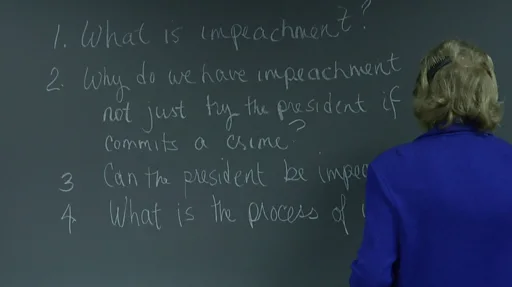 1. What is impeachment?
2. Why do we have impeachment
not just try the president if
commits a crime?
3 Can the president be impea
4. What is the process of